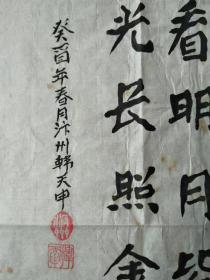 看明月皆
光长照金
癸酉年春月汴州韩天申